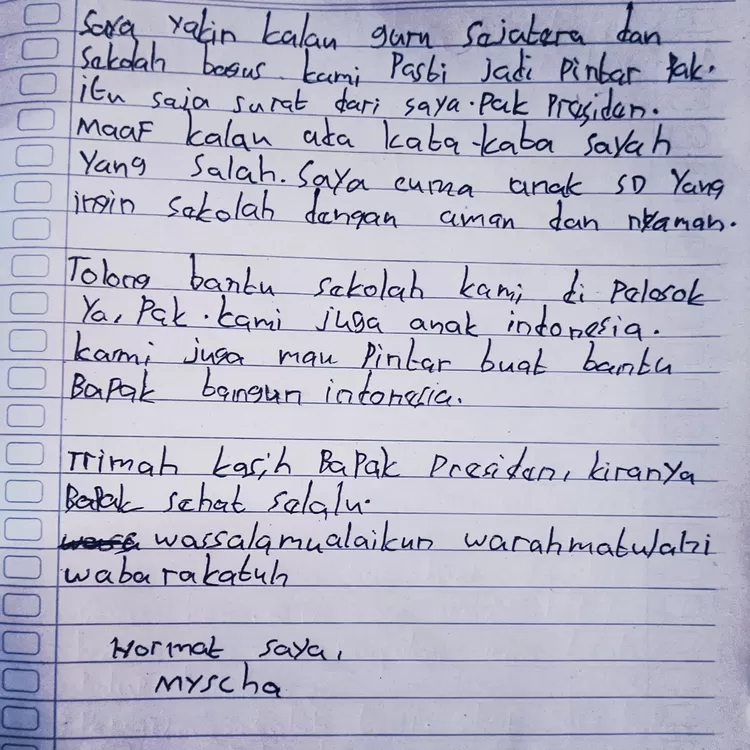 Saya yakin kalau guru sajatera dan
sakolah bagus kami Pasti jadi Pintar Pak.
itu saja surat dari saya. Pak Presidan.
Maaf kalau ada kata-kata sayah
Yang salah. Saya cuma anak SD Yang
ingin sakolah dangan aman dan nyaman.
Tolong bantu sakolah kami di Palosok
Ya, Pak. kami juga anak indonesia.
kami juga mau Pintar buat bantu
Bapak bangun indonesia.
Trimah kasih Bapak Presidan, kiranya
Bapak sehat selalu.
wassalamualaikun warahmatulahi
wabarakatuh
Hormat saya,
Myscha